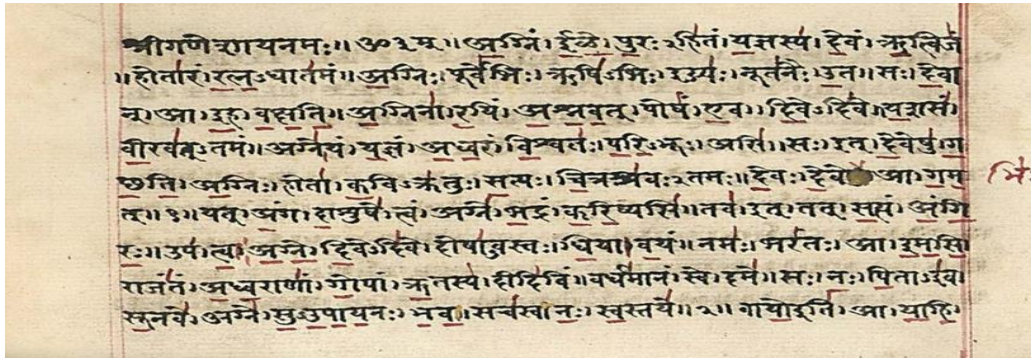 श्रीगणेशायनमः॥ ॐ३म्॥ अ॒ग्निं। ई॒ळे॒। पु॒रः२हि॑तं। य॒ज्ञस्य॑। दे॒वं। ऋ॒त्विजं॑
॥होता॑रं। र॒त्न॒ऽधात॑मं॥ अ॒ग्निः। पूर्वे॑भिः। ऋषि॑ऽभिः। ईड्यः॑। नूत॑नैः। उ॒त॥ सः। दे॒वा
न्। आ। इ॒ह। व॒क्ष॒ति॒॥ अ॒ग्निना॑। र॒यिं। अ॒श्न॒व॒त्। पोषं॑। ए॒व। दि॒वेऽदि॑वे॥ य॒शसं॑
वी॒रव॑त्ऽतमं॥ अग्ने॑। यं। य॒ज्ञं। अ॒ध्व॒रं। वि॒श्वतः॑। प॒रि॒ऽभूः। असि॑॥ सः। इत्। दे॒वेषु॑। ग॒
च्छ॒ति॒। अ॒ग्निः। होता॑। क॒विऽक्र॑तुः। स॒त्यः। चि॒त्रश्र॑वः२तमः॥ दे॒वः। दे॒वे आ। ग॒म॒ भिः॑
त्॥१॥ यत्। अं॒ग। दा॒शुषे॑। त्वं। अग्ने॑। भ॒द्रं। क॒रि॒ष्यसि॑॥ तव॑। इत्। तत्। स॒त्यं। अं॒गि॒
रः॒॥ उप॑। त्वा॒। अ॒ग्ने॒। दि॒वेऽदि॑वे। दोषा॑ऽवस्तः। धि॒या। व॒यं॥ नमः॑। भरं॑तः। आ। इ॒म॒सि॒
राजं॑तं। अ॒ध्व॒राणां॑। गो॒पां। ऋ॒तस्य॑। दीदि॑विं॥ वर्ध॑मानं। स्वे। दमे॑॥ सः। नः॒। पि॒ताऽइ॑व
सू॒नवे॑। अग्ने॑। सु॒ऽउ॒पा॒य॒नः। भ॒व॒॥ सच॑स्व। नः॒। स्व॒स्तये॑॥२॥ वायो॒इति॑। आ। या॒हि॒।